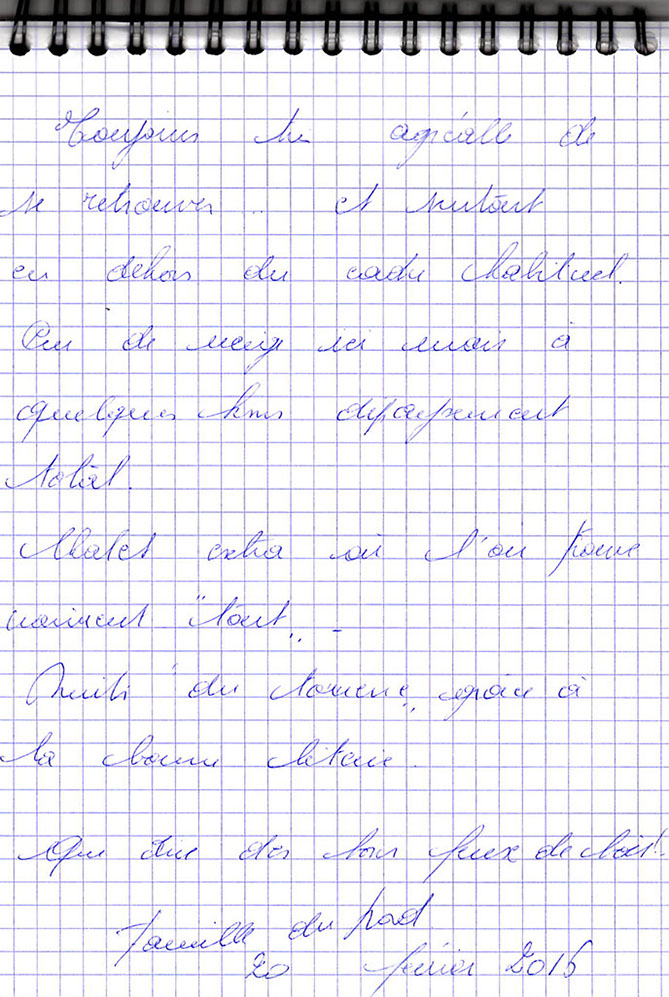 Toujours très agréable de
se retrouver .. et surtout
en dehors du cadre habituel.
Peu de neige ici mais à
quelques kms dépaysement
total.
Chalet extra où l'on trouve
vraiment "tout" -
Nuits "du tonnerre" grâce à
la bonne literie.
Que dire des bons feux de bois!
Famille du
20 février 2016